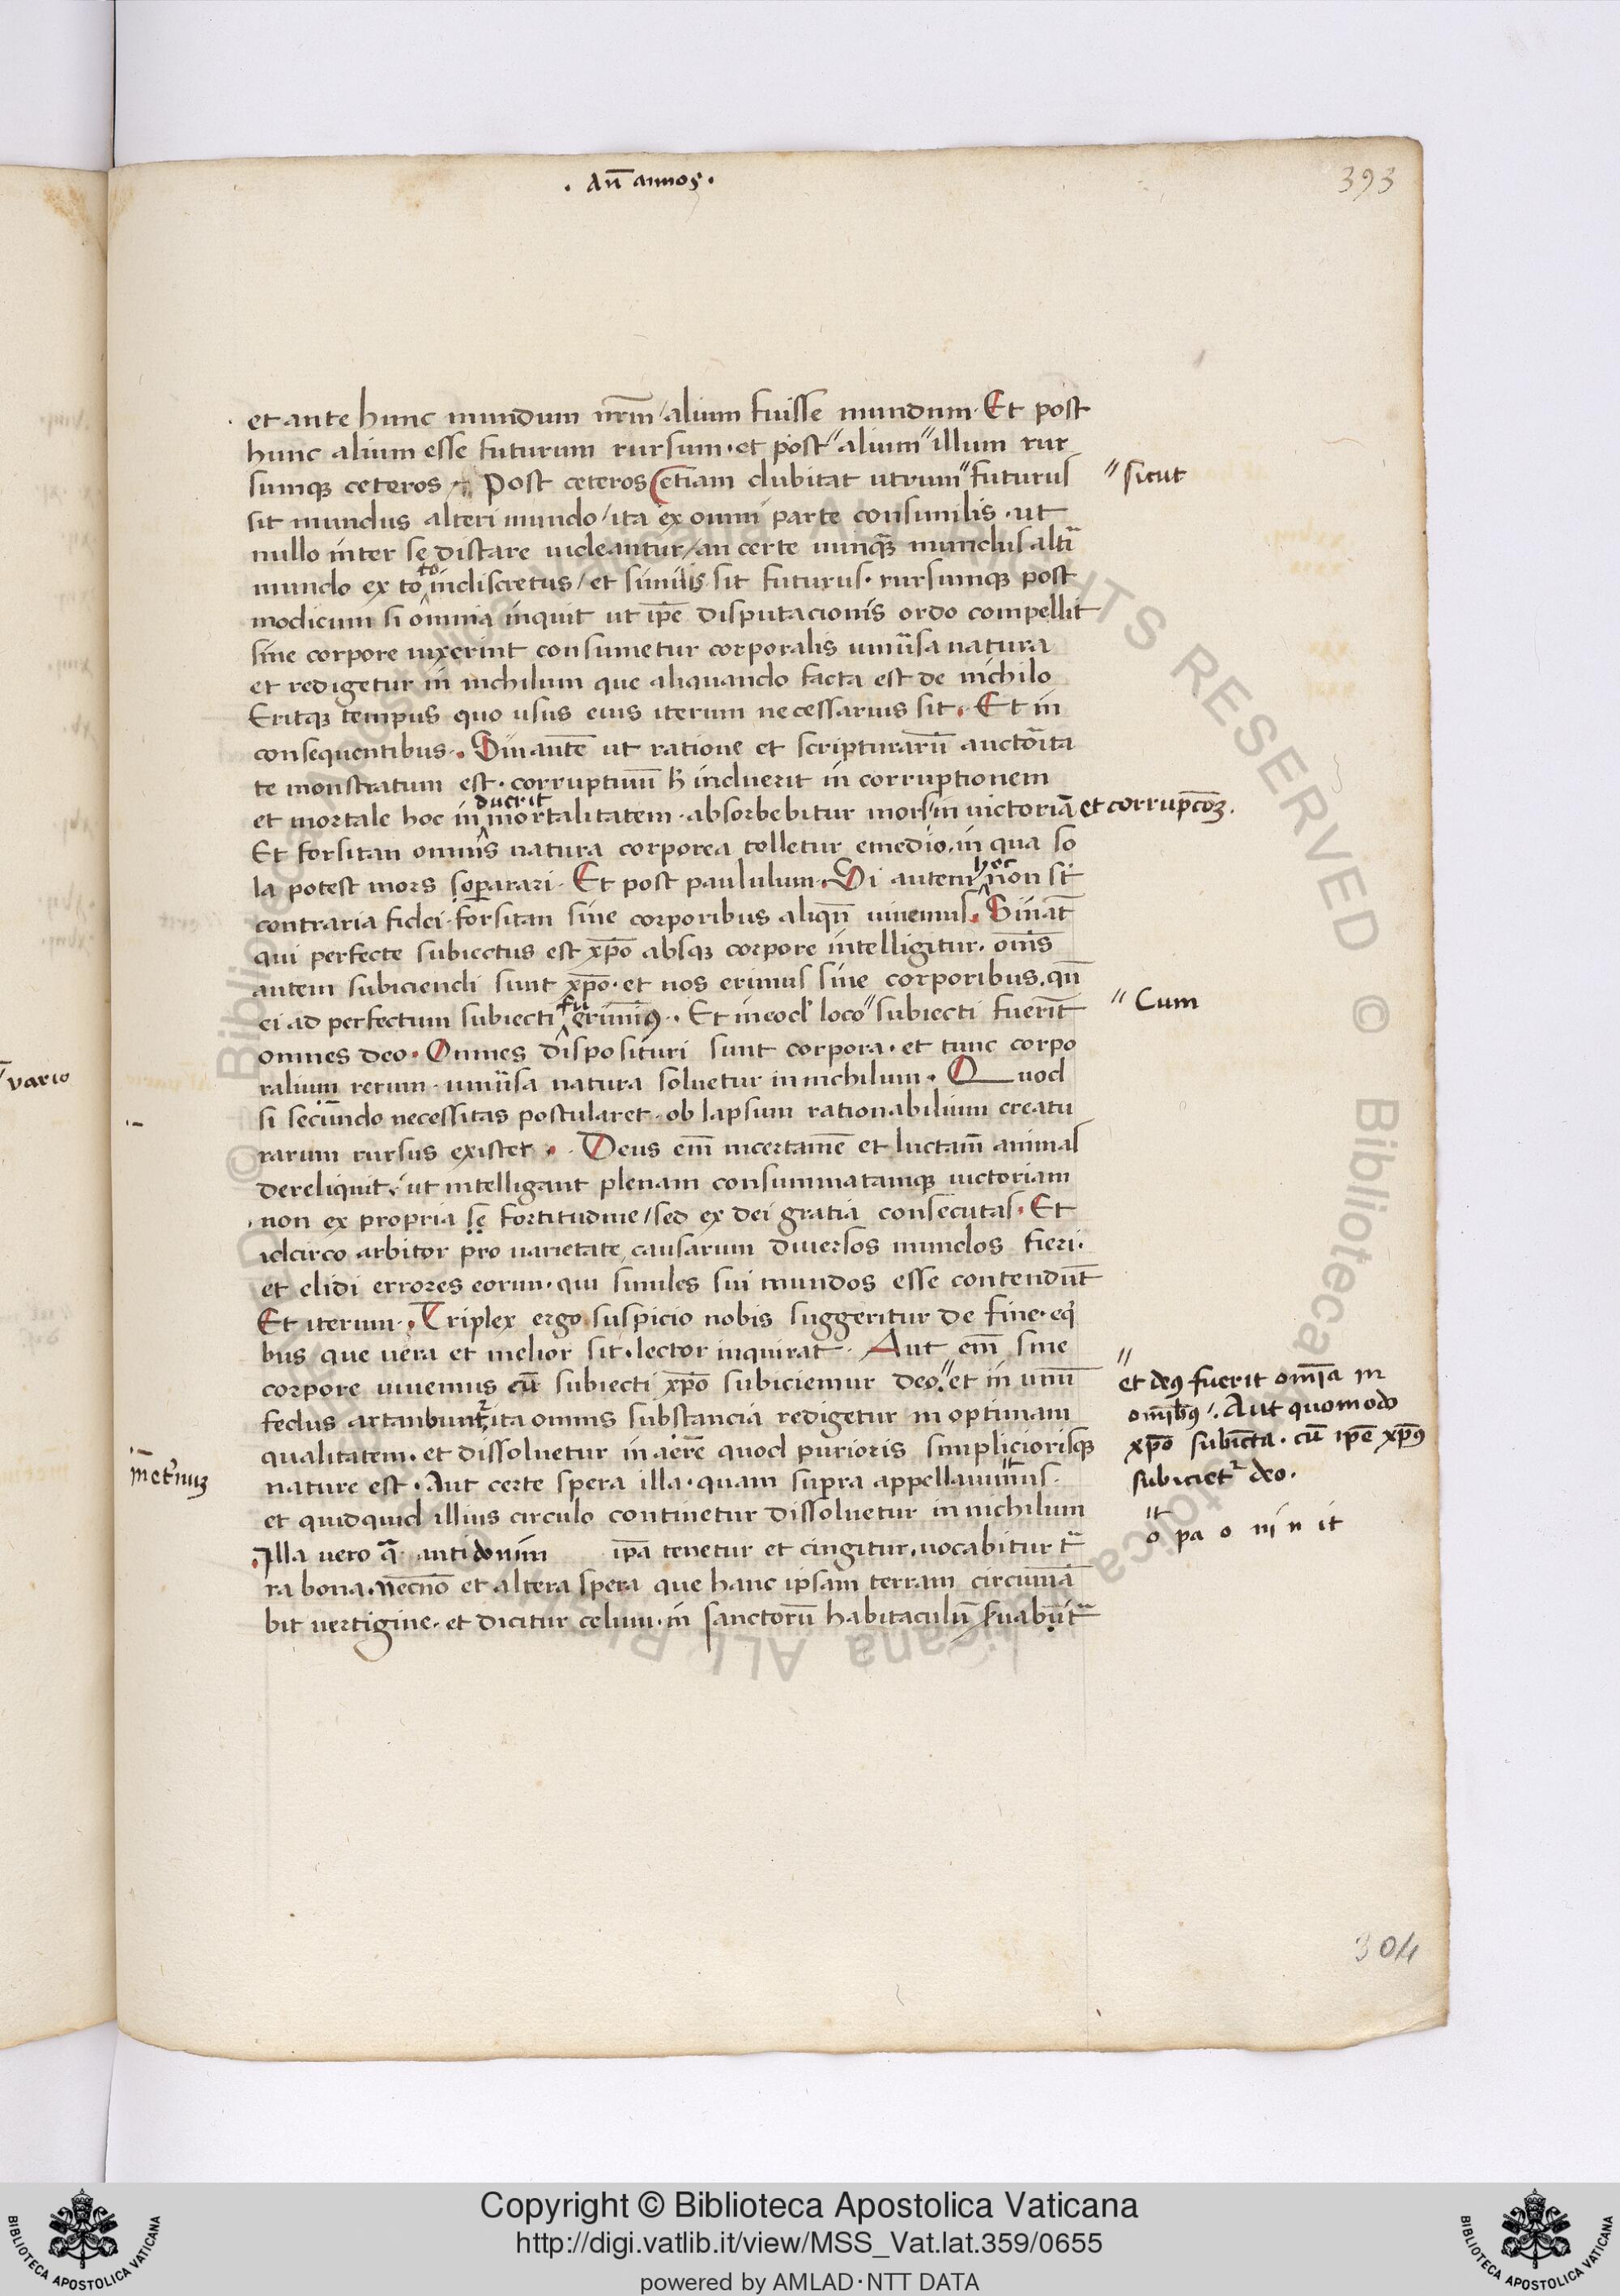 . aū annos .
393
et ante hunc mundum nr̄m / alium fuisse mundum. Et post
hunc alium esse futurum rursum. et post " alium " illum rur
sumqꝫ ceteros. Post ceteros etiam dubitat utrum " futurus
" sicut
sit mundus alteri mundo / ita ex omni parte consimilis. ut
nullo inter se distare uideantur / an certe nunqꝫ mundus alt̄i
mundo ex toto indiscretus / et similis sit futurus. rursumqꝫ post
modicum si omnia inquit ut ip̄e disputacionis ordo compellit
sine corpore uixerint consumetur corporalis uniūsa natura
et redigetur in nichilum que aliquando facta est de nichilo
Eritqꝫ tempus quo usus eius iterum necessarius sit. Et in
consequentibus. Sin autē ut ratione et scripturarū auctorita
te monstratum est. corruptiuū h̄ induerit in corruptionem
et mortale hoc induerit inmortalitatem. absorbebitur mors in uictoriā et corrupc̄oꝫ.
Et forsitan omnis natura corporea tolletur emedio. in qua so
la potest mors soperari. Et post paululum. Si autem hoc non sit
contraria fidei. forsitan sine corporibus aliqn̄ uiuemus. Sinat̄
qui perfecte subiectus est xp̄o absqꝫ corpore intelligitur. om̄s
autem subiciendi sunt xp̄o. et nos erimus sine corporibus. qn̄
ei ad perfectum subiecti fuerimꝰ. Et in eod' loco " subiecti fuerīt
" Cum
omnes deo. Omnes disposituri sunt corpora. et tunc corpo
ralium rerum. uniūsa natura soluetur in nichilum. Quod
si secundo necessitas postularet. ob lapsum rationabilium creatu
rarum rursus existet. Deus em̄ in certamē et luctam̄ animas
dereliquit. ut intelligant plenam consummatamqꝫ uictoriam
non ex propria se fortitudine / sed ex dei gratia consecutas. Et
idcirco arbitor pro uarietate causarum diuersos mundos fieri.
et elidi errores eorum. qui similes sui mundos esse contendūt
Et iterum. Triplex ergo suspicio nobis suggeritur de fine. eq̄
bus que uera et melior sit. lector inquirat. Aut em̄ sine
corpore uiuemus cū subiecti xp̄o subiciemur deo. " et in unū
" et deꝰ fuerit om̄ia in
om̄ibꝰ. Aut quomodo
xp̄o subiecta. cū ip̄e xp̄ꝰ
subicietr deo.
fedus artanbuntr ita omnis substancia redigetur in optimam
qualitatem. et dissoluetur in aerē quod purioris simpliciorisqꝫ
nature est. Aut certe spera illa. quam supra appellauimus.
et quidquid illius circulo continetur dissoluetur in nichilum
o pa o ni n it
Illa uero q̄ antidonim ip̄a tenetur et cingitur. uocabitur t̄
ra bona. necnō et altera spera que hanc ipsam terram circumā
bit uertigine. et dicitur celum. in sanctorū habitaculū s̄uabunt̄
304
uario
Copyright © Biblioteca Apostolica Vaticana
http://digi.vatlib.it/view/MSS_Vat.lat.359/0655
powered by AMLAD·NTT DATA
BIBLIOTECA APOSTOLICA VATICANA
BIBLIOTECA APOSTOLICA VATICANA